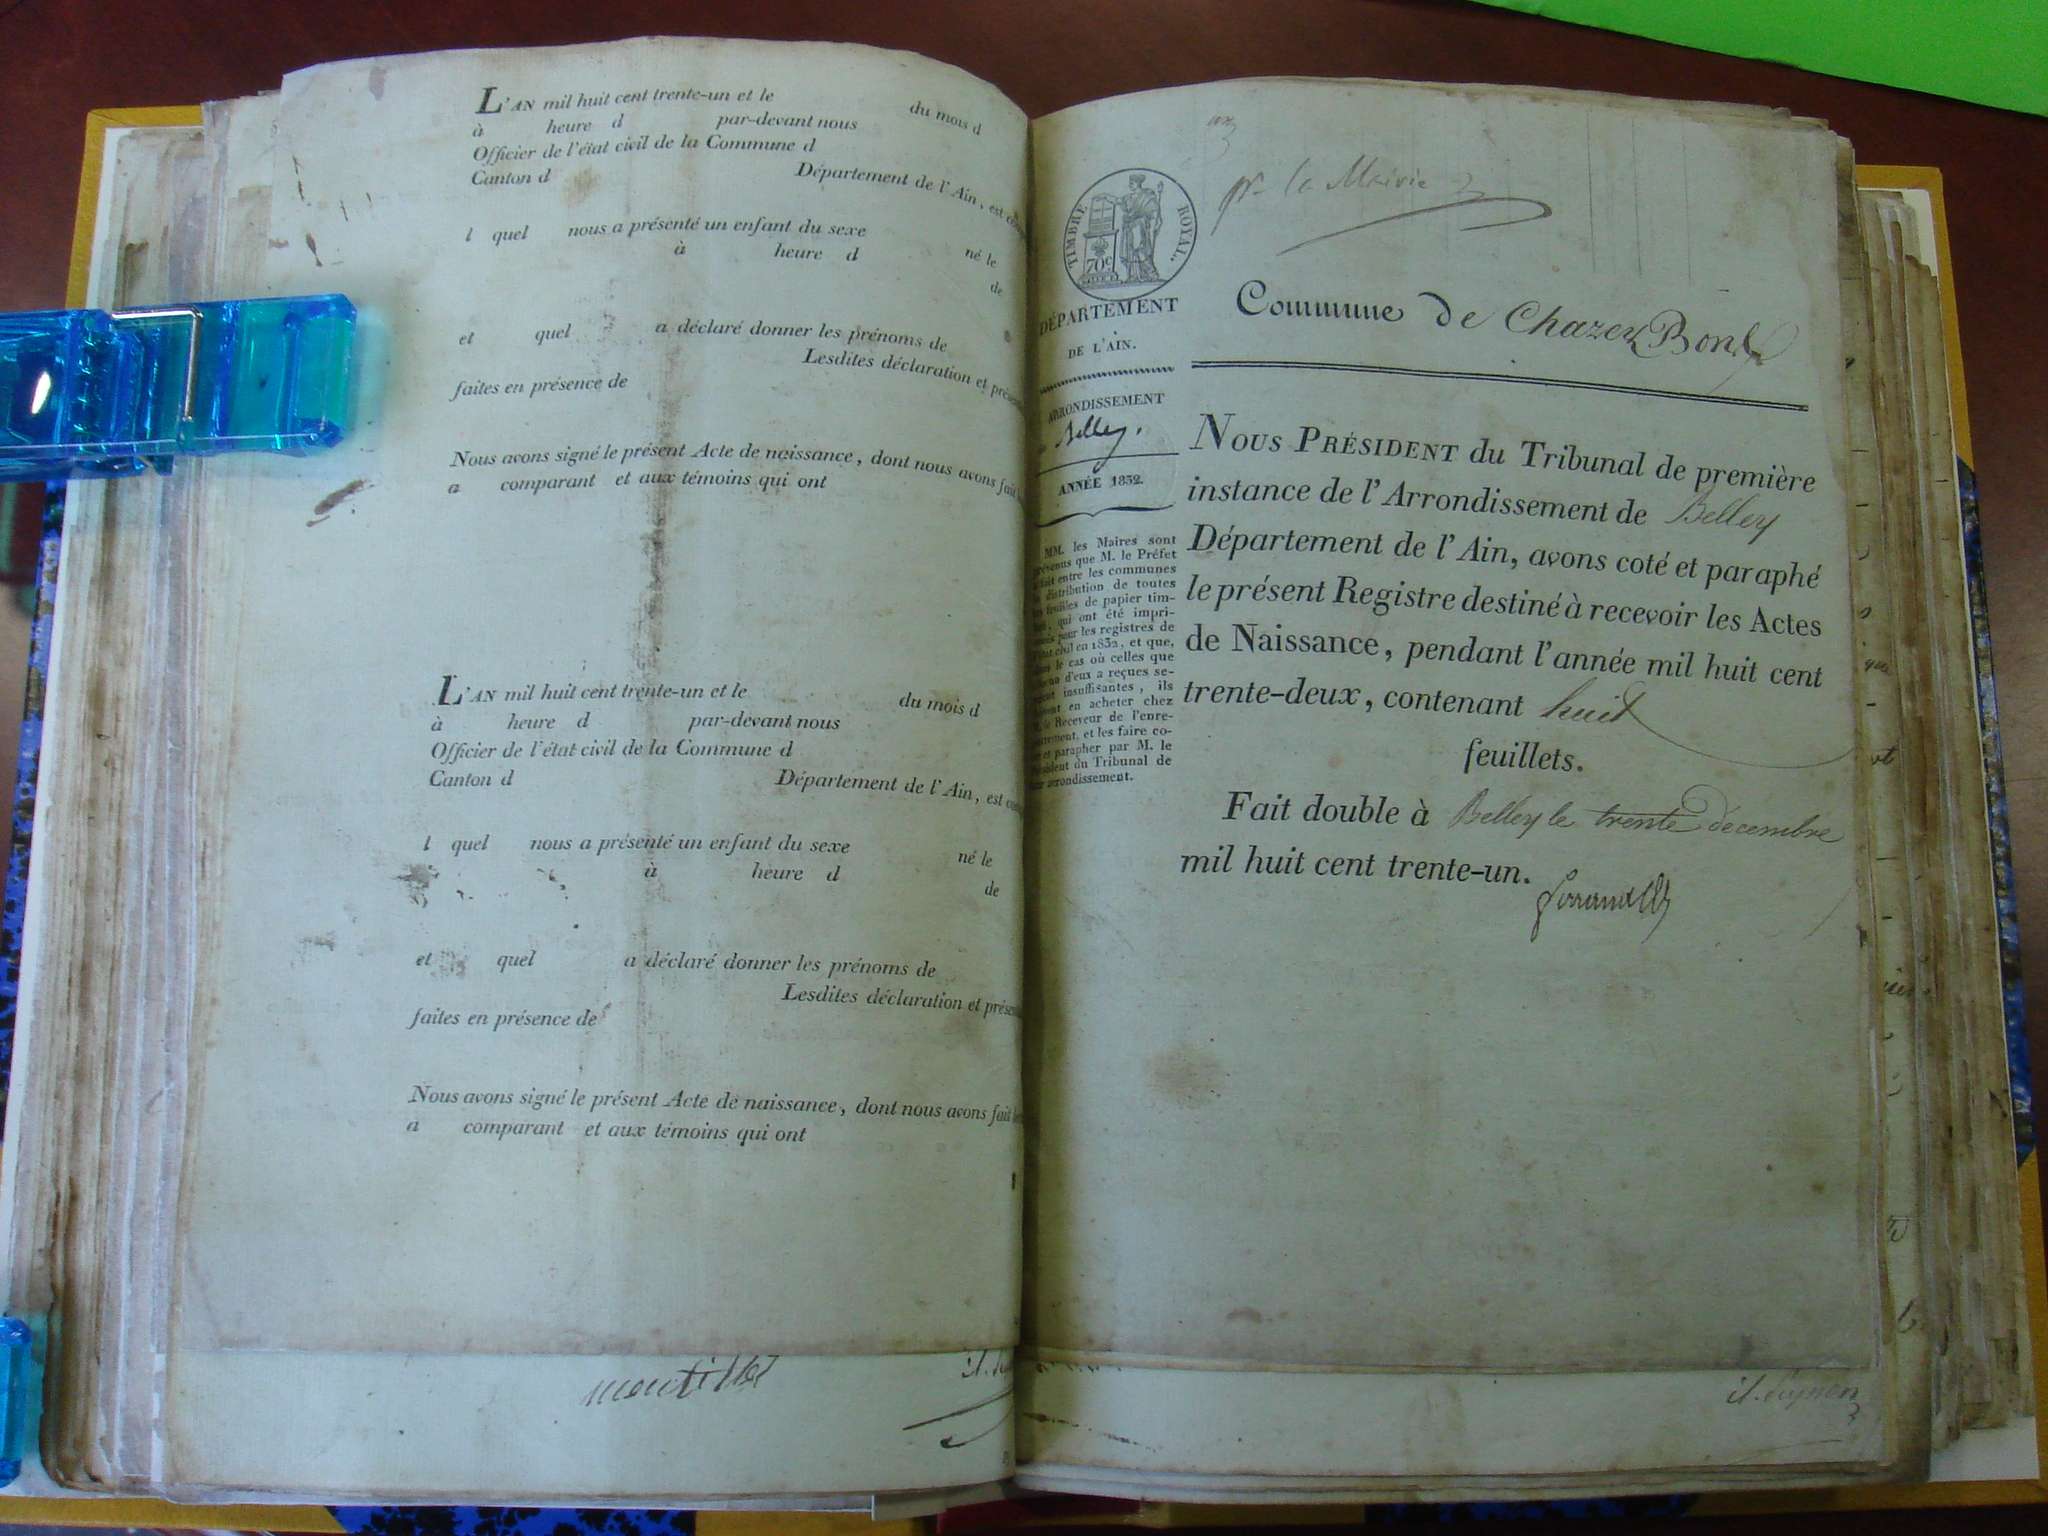 L'AN mil huit cent trente-un et le du mois d
à heure d par-devant nous
Officier de l'état civil de la Commune d
Canton d Département de l'Ain, est
l quel nous a présenté un enfant du sexe né le
à heure d de
et quel a déclaré donner les prénoms de
Lesdites déclaration et
faites en présence de
Nous avons signé le présent Acte de naissance, dont nous avons fait
a comparant et aux témoins qui ont
L'AN mil huit cent trente-un et le du mois d
à heure d par-devant nous
Officier de l'état civil de la Commune d
Canton d Département de l'Ain, est
l quel nous a présenté un enfant du sexe né le
à heure d de
et quel a déclaré donner les prénoms de
Lesdites déclaration et
faites en présence de
Nous avons signé le présent Acte de naissance, dont nous avons fait
a comparant et aux témoins qui ont
pr la Mairie
TIMBRE ROYAL.
70c
DÉPARTEMENT
DE L'AIN.
ARRONDISSEMENT
Belley.
ANNÉE 1832.
MM. les Maires sont
prévenus que M. le Préfet
fait entre les communes
distribution de toutes
feuilles de papier tim-
qui ont été impri-
pour les registres de
civil en 1832, et que,
le cas où celles que
d'eux a reçues se-
insuffisantes, ils
en acheter chez
le Receveur de l'enre-
et les faire co-
et parapher par M. le
du Tribunal de
arrondissement.
Commune de Chazey Bons
NOUS PRÉSIDENT du Tribunal de première
instance de l'Arrondissement de Belley
Département de l'Ain, avons coté et paraphé
le présent Registre destiné à recevoir les Actes
de Naissance, pendant l'année mil huit cent
trente-deux, contenant huit
feuillets.
Fait double à Belley le trente décembre
mil huit cent trente-un.